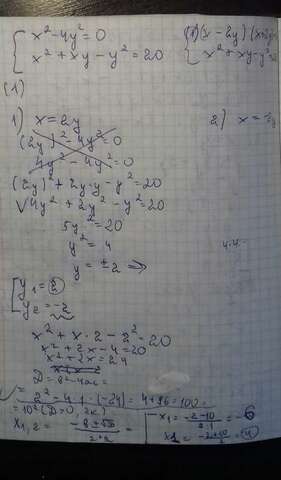 x² - 4y² = 0
x² + xy - y² = 20
(1) (x - 2y)
x² + xy - y²
(1)
1) x = 2y
2) x =
(2y)² - 4y² = 0
4y² - 4y² = 0
(2y)² + 2y·y - y² = 20
4y² + 2y² - y² = 20
5y² = 20
y² = 4
y = ±2 ⇒
y₁ = 2
y₂ = -2
x² + x·2 - 2² = 20
x² + 2x - 4 = 20
x² + 2x = 24
D = b² - 4ac =
= 2² - 4·1·(-24) = 4 + 96 = 100
= 10² (D>0, 2к.)
x₁,₂ =
x₁ = -2-10 / 2·1 = -6
x₂ = -2+10 / 2 = 4